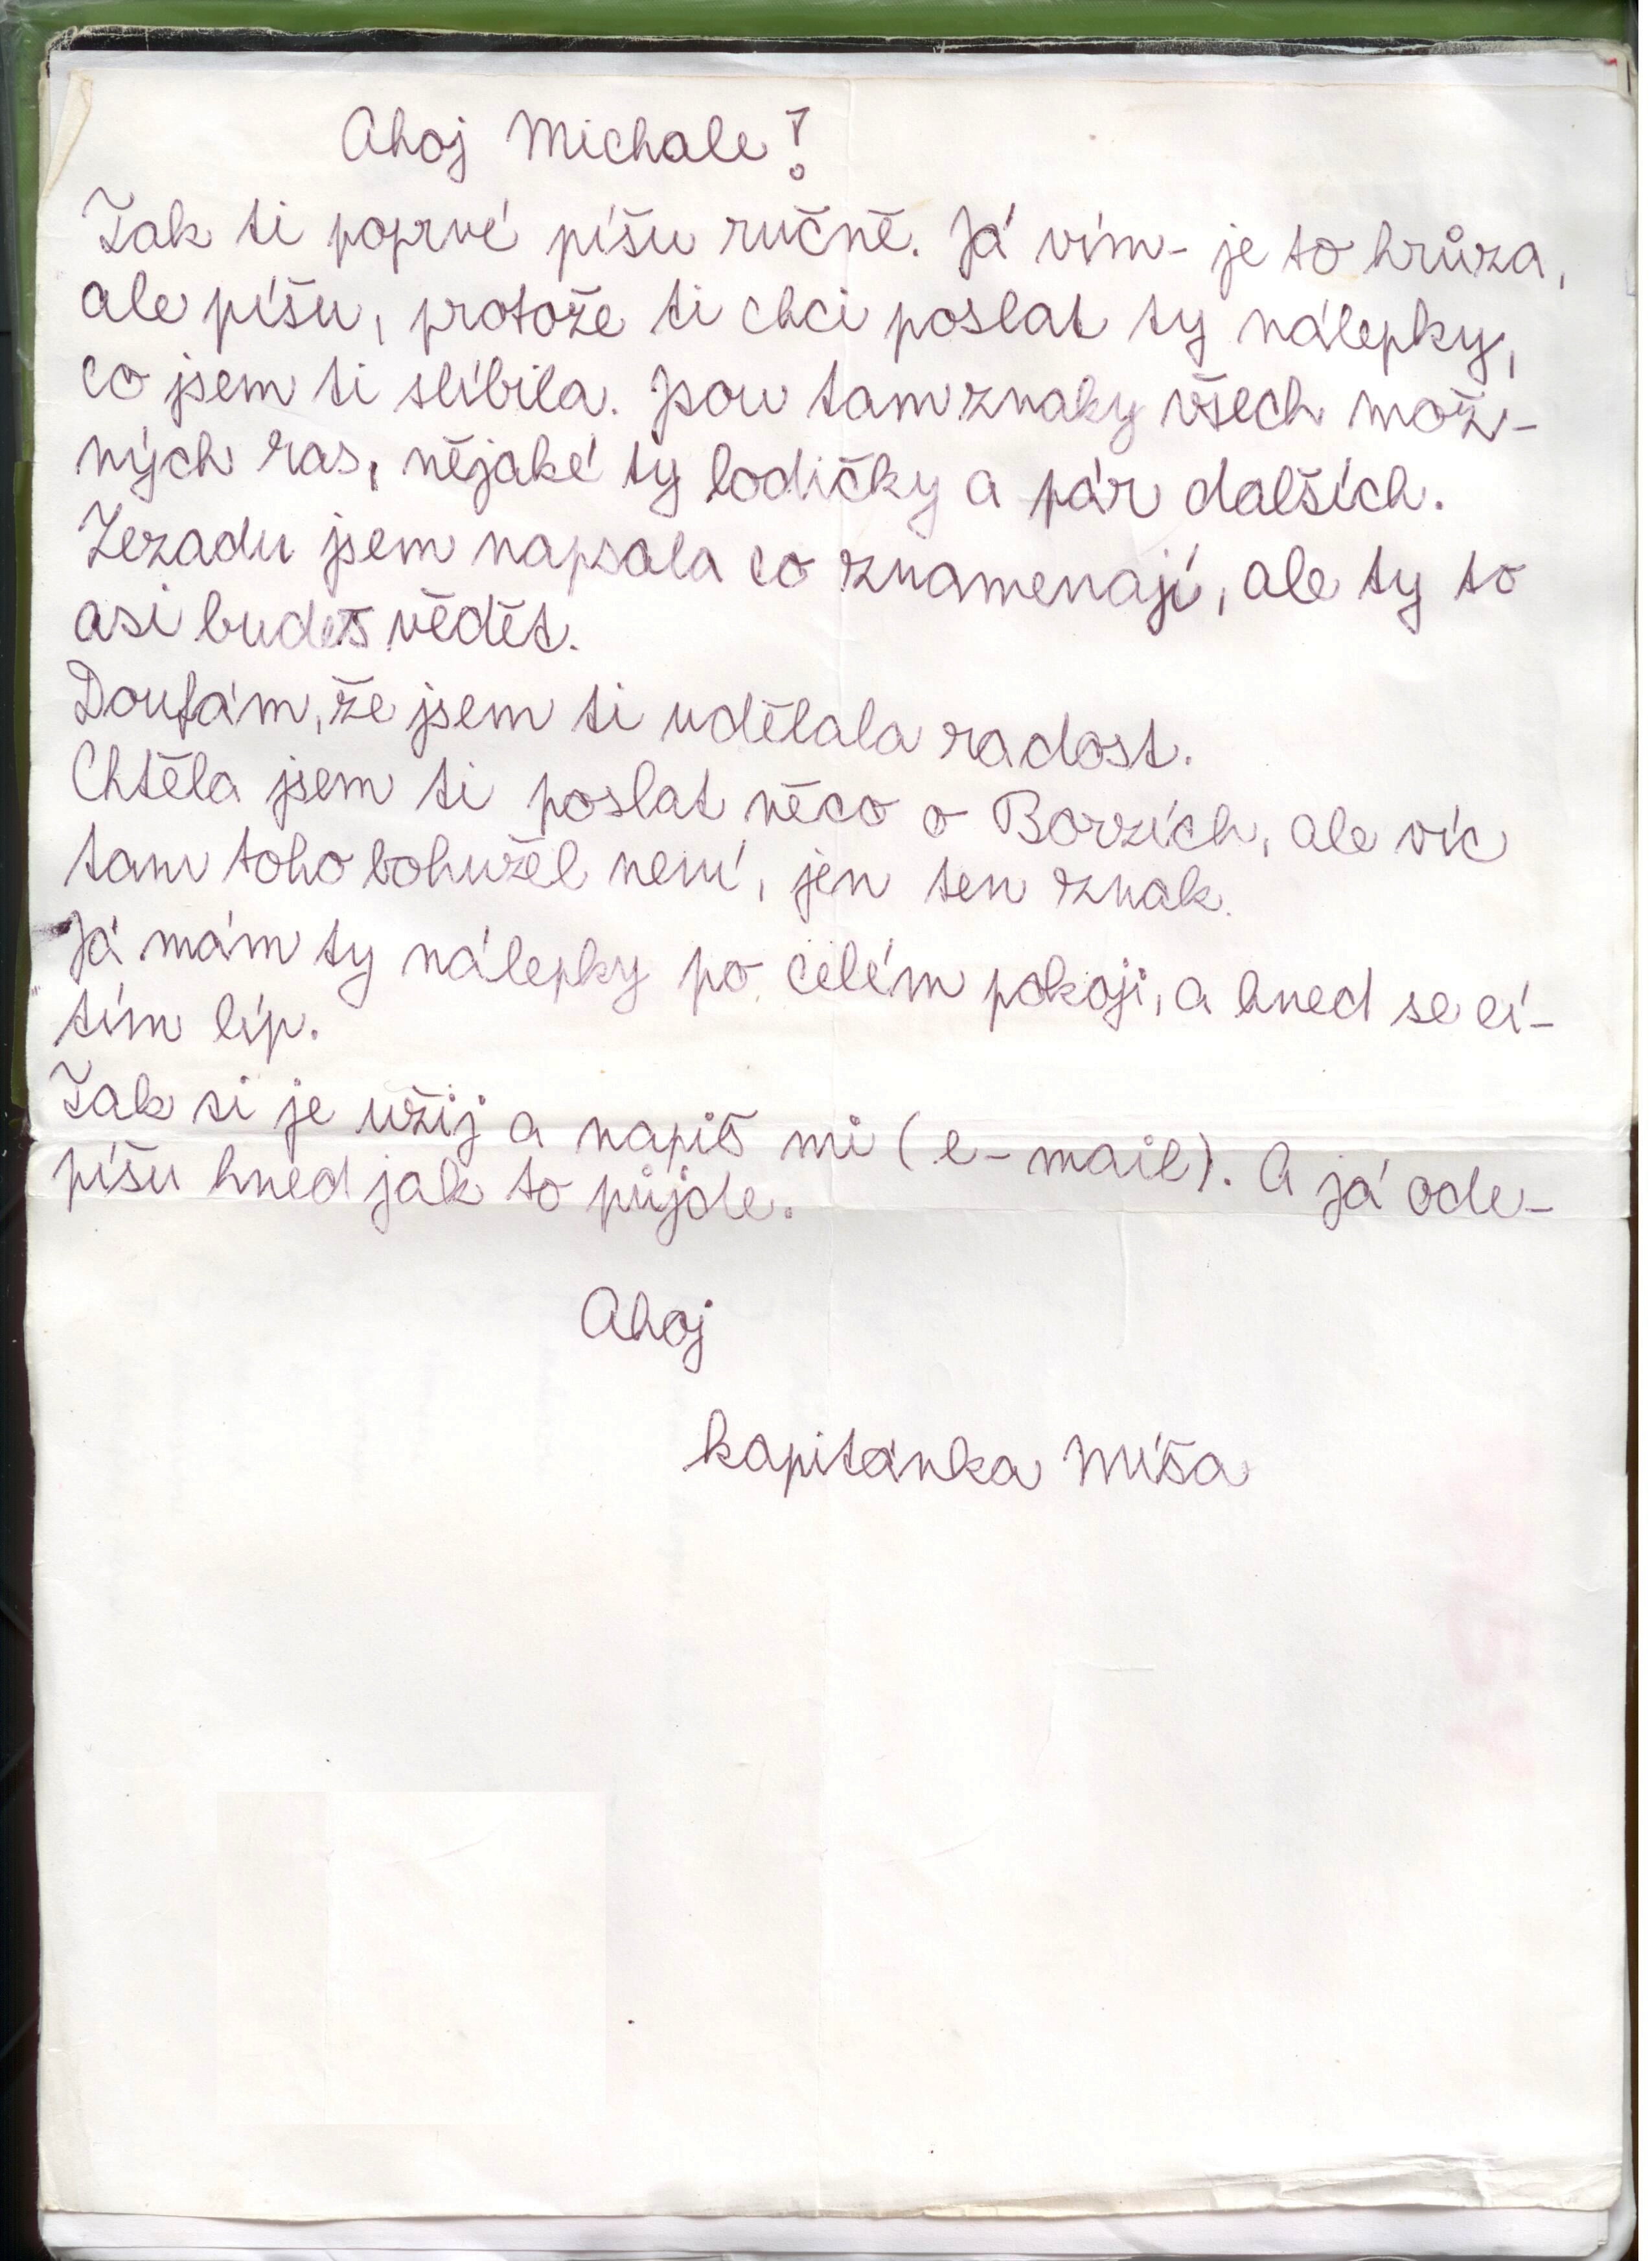 Ahoj Michale!
Tak ti poprvé píšu ručně. Já vím - je to hrůza,
ale píšu, protože ti chci poslat ty nálepky,
co jsem ti slíbila. Jsou tam znaky všech mož-
ných ras, nějaké ty lodičky a pár dalších.
Zezadu jsem napsala co znamenají, ale ty to
asi budeš vědět.
Doufám, že jsem ti udělala radost.
Chtěla jsem ti poslat něco o Borzích, ale víc
tam toho bohužel není, jen ten znak.
Já mám ty nálepky po celém pokoji, a hned se cí-
tím líp.
Tak si je užij a napiš mi (e-mail). A já ode-
píšu hned jak to půjde.
Ahoj
kapitánka Míša